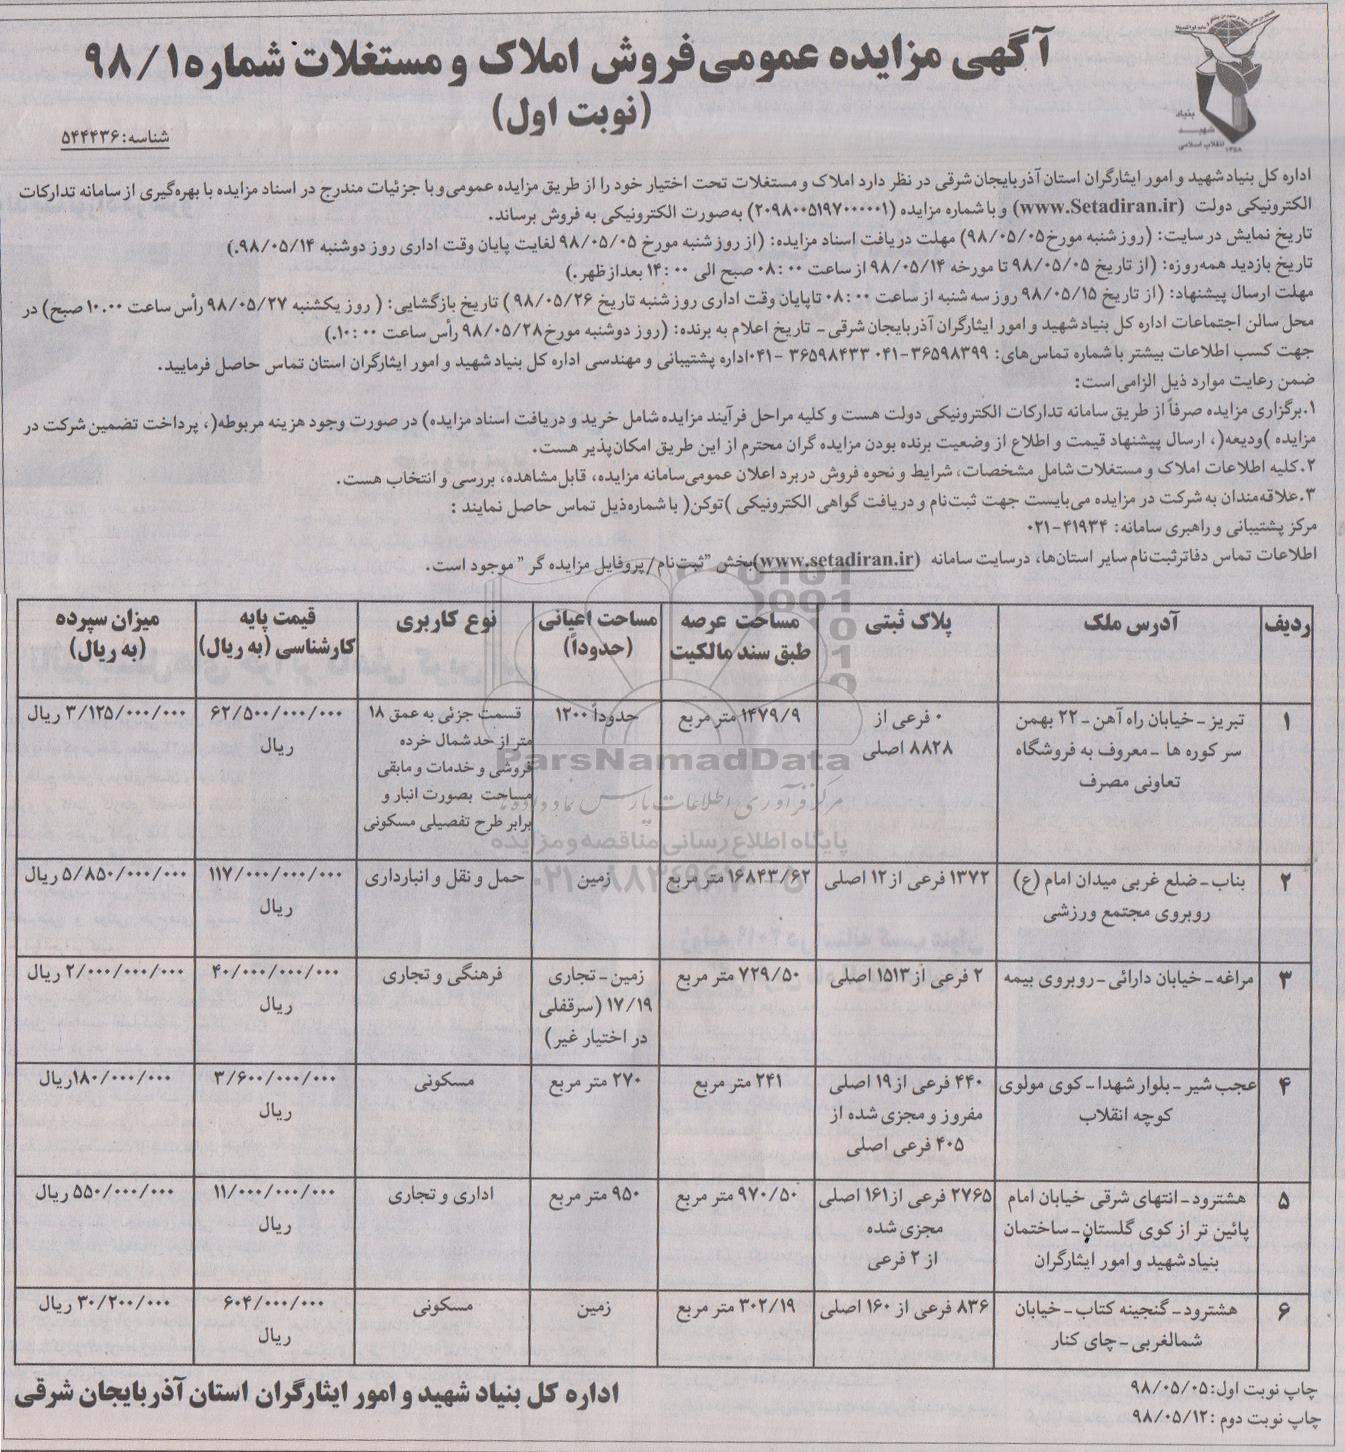 آگهی مزایده عمومی فروش املاک و مستغلات شماره ۹۸/۱
(نوبت اول)
شناسه: ۵۴۴۴۳۶
بنیاد
شهید
انقلاب اسلامی
۱۳۵۸
اداره کل بنیاد شهید و امور ایثارگران استان آذربایجان شرقی در نظر دارد املاک و مستغلات تحت اختیار خود را از طریق مزایده عمومی و با جزئیات مندرج در اسناد مزایده با بهره‌گیری از سامانه تدارکات
الکترونیکی دولت (www.Setadiran.ir) و با شماره مزایده (۲۰۹۸۰۰۵۱۹۷۰۰۰۰۰۱) به صورت الکترونیکی به فروش برساند.
تاریخ نمایش در سایت: (روز شنبه مورخ ۹۸/۰۵/۰۵) مهلت دریافت اسناد مزایده: (از روز شنبه مورخ ۹۸/۰۵/۰۵ لغایت پایان وقت اداری روز دوشنبه ۹۸/۰۵/۱۴.)
تاریخ بازدید همه‌روزه: (از تاریخ ۹۸/۰۵/۰۵ تا مورخه ۹۸/۰۵/۱۴ از ساعت ۰۸:۰۰ صبح الی ۱۴:۰۰ بعدازظهر.)
مهلت ارسال پیشنهاد: (از تاریخ ۹۸/۰۵/۱۵ روز سه شنبه از ساعت ۰۸:۰۰ تا پایان وقت اداری روز شنبه تاریخ ۹۸/۰۵/۲۶) تاریخ بازگشایی: (روز یکشنبه ۹۸/۰۵/۲۷ رأس ساعت ۱۰.۰۰ صبح) در
محل سالن اجتماعات اداره کل بنیاد شهید و امور ایثارگران آذربایجان شرقی - تاریخ اعلام به برنده: (روز دوشنبه مورخ ۹۸/۰۵/۲۸ رأس ساعت ۱۰:۰۰.)
جهت کسب اطلاعات بیشتر با شماره تماس‌های: ۳۶۵۹۸۳۹۹-۰۴۱ ۳۶۵۹۸۴۳۳-۰۴۱ اداره پشتیبانی و مهندسی اداره کل بنیاد شهید و امور ایثارگران استان تماس حاصل فرمایید.
ضمن رعایت موارد ذیل الزامی است:
۱.برگزاری مزایده صرفاً از طریق سامانه تدارکات الکترونیکی دولت هست و کلیه مراحل فرآیند مزایده شامل خرید و دریافت اسناد مزایده) در صورت وجود هزینه مربوطه(، پرداخت تضمین شرکت در
مزایده )ودیعه(، ارسال پیشنهاد قیمت و اطلاع از وضعیت برنده بودن مزایده گران محترم از این طریق امکان‌پذیر هست.
۲.کلیه اطلاعات املاک و مستغلات شامل مشخصات، شرایط و نحوه فروش در برد اعلان عمومی سامانه مزایده، قابل مشاهده، بررسی و انتخاب هست.
۳.علاقه‌مندان به شرکت در مزایده می‌بایست جهت ثبت‌نام و دریافت گواهی الکترونیکی )توکن( با شماره ذیل تماس حاصل نمایند :
مرکز پشتیبانی و راهبری سامانه: ۴۱۹۳۴-۰۲۱
اطلاعات تماس دفاتر ثبت‌نام سایر استان‌ها، در سایت سامانه (www.setadiran.ir) بخش "ثبت‌نام / پروفایل مزایده گر" موجود است.
ردیف | آدرس ملک | پلاک ثبتی | مساحت عرصه طبق سند مالکیت | مساحت اعیانی (حدوداً) | نوع کاربری | قیمت پایه کارشناسی (به ریال) | میزان سپرده (به ریال)
۱ | تبریز - خیابان راه آهن - ۲۲ بهمن سر کوره ها - معروف به فروشگاه تعاونی مصرف | ۰ فرعی از ۸۸۲۸ اصلی | ۱۴۷۹/۹ متر مربع | حدوداً ۱۲۰۰ | قسمت جزئی به عمق ۱۸ متر از حد شمال خرده فروشی و خدمات و مابقی مساحت بصورت انبار و برابر طرح تفصیلی مسکونی | ۶۲/۵۰۰/۰۰۰/۰۰۰ ریال | ۳/۱۲۵/۰۰۰/۰۰۰ ریال
۲ | بناب - ضلع غربی میدان امام (ع) روبروی مجتمع ورزشی | ۱۳۷۲ فرعی از ۱۲ اصلی | ۱۶۸۴۳/۶۲ متر مربع | زمین | حمل و نقل و انبارداری | ۱۱۷/۰۰۰/۰۰۰/۰۰۰ ریال | ۵/۸۵۰/۰۰۰/۰۰۰ ریال
۳ | مراغه - خیابان دارائی - روبروی بیمه | ۲ فرعی از ۱۵۱۳ اصلی | ۷۲۹/۵۰ متر مربع | زمین - تجاری ۱۷/۱۹ (سرقفلی در اختیار غیر) | فرهنگی و تجاری | ۴۰/۰۰۰/۰۰۰/۰۰۰ ریال | ۲/۰۰۰/۰۰۰/۰۰۰ ریال
۴ | عجب شیر - بلوار شهدا - کوی مولوی کوچه انقلاب | ۴۴۰ فرعی از ۱۹ اصلی مفروز و مجزی شده از ۴۰۵ فرعی اصلی | ۲۴۱ متر مربع | ۲۷۰ متر مربع | مسکونی | ۳/۶۰۰/۰۰۰/۰۰۰ ریال | ۱۸۰/۰۰۰/۰۰۰ ریال
۵ | هشترود - انتهای شرقی خیابان امام پائین تر از کوی گلستان - ساختمان بنیاد شهید و امور ایثارگران | ۲۷۶۵ فرعی از ۱۶۱ اصلی مجزی شده از ۲ فرعی | ۹۷۰/۵۰ متر مربع | ۹۵۰ متر مربع | اداری و تجاری | ۱۱/۰۰۰/۰۰۰/۰۰۰ ریال | ۵۵۰/۰۰۰/۰۰۰ ریال
۶ | هشترود - گنجینه کتاب - خیابان شمالغربی - چای کنار | ۸۳۶ فرعی از ۱۶۰ اصلی | ۳۰۲/۱۹ متر مربع | زمین | مسکونی | ۶۰۴/۰۰۰/۰۰۰ ریال | ۳۰/۲۰۰/۰۰۰ ریال
ParsNamadData
مرکز فرآوری اطلاعات پارس نماد داده ها
پایگاه اطلاع رسانی مناقصه و مزایده
چاپ نوبت اول: ۹۸/۰۵/۰۵
چاپ نوبت دوم: ۹۸/۰۵/۱۲
اداره کل بنیاد شهید و امور ایثارگران استان آذربایجان شرقی